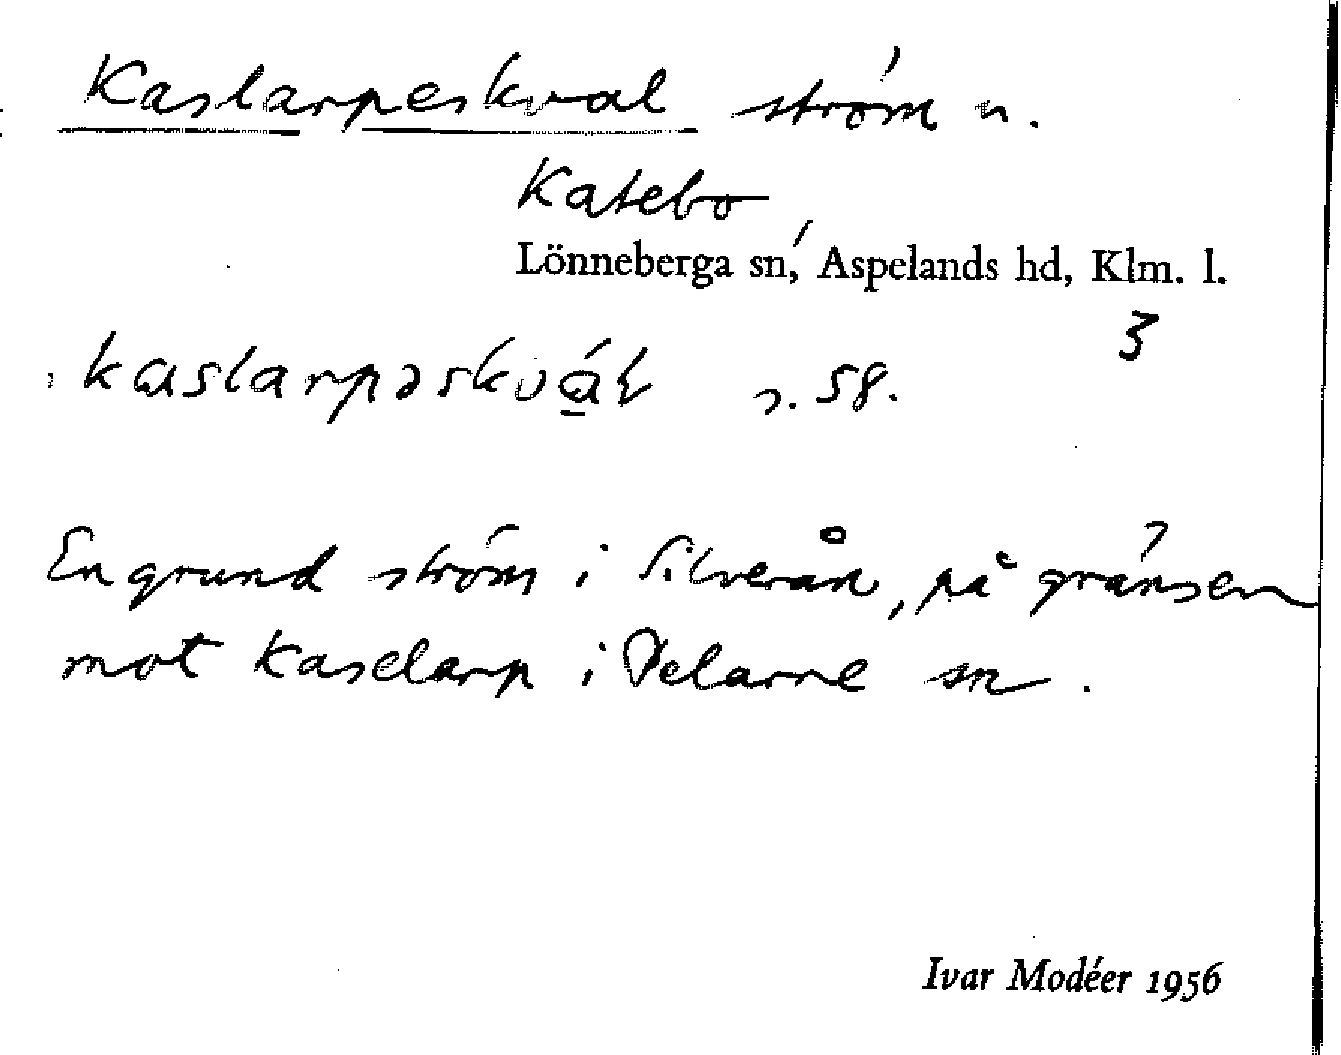 Kaslarpeskval ström u.
Katebo
Lönneberga sn, Aspelands hd, Klm. l.
3
kaslarpəskvál s. 58.
En grund ström i Silverån, på gränsen
mot Kaselarp i Pelarne sn.
Ivar Modéer 1956